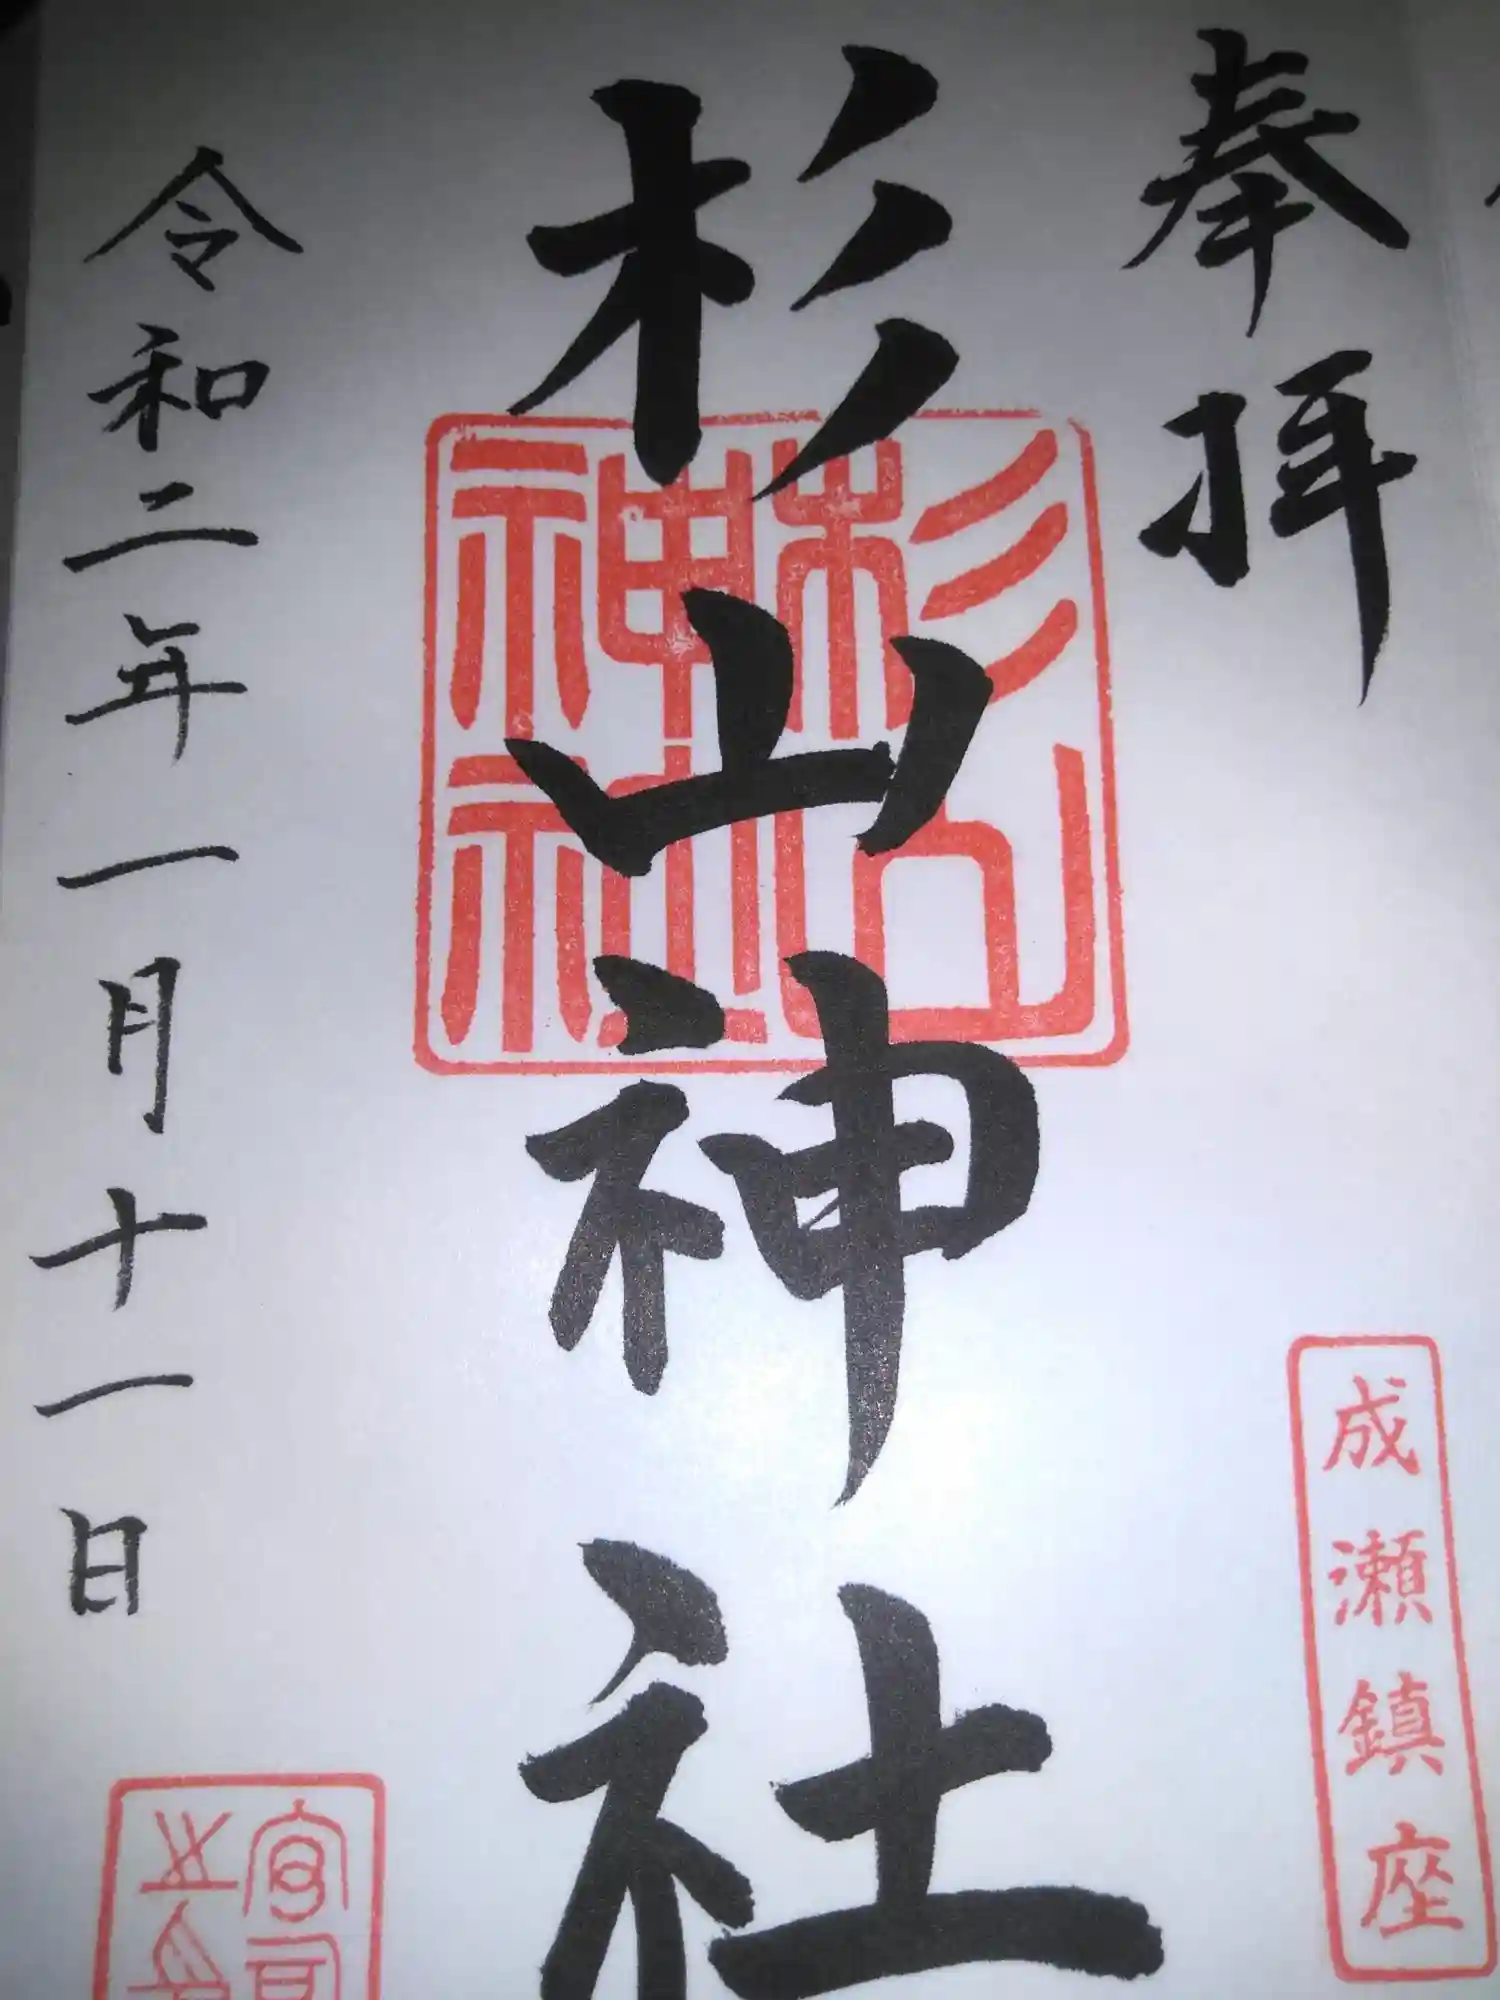 奉拝
成瀬鎮座
杉山神社
杉山
神社
令和二年一月十一日
宮司